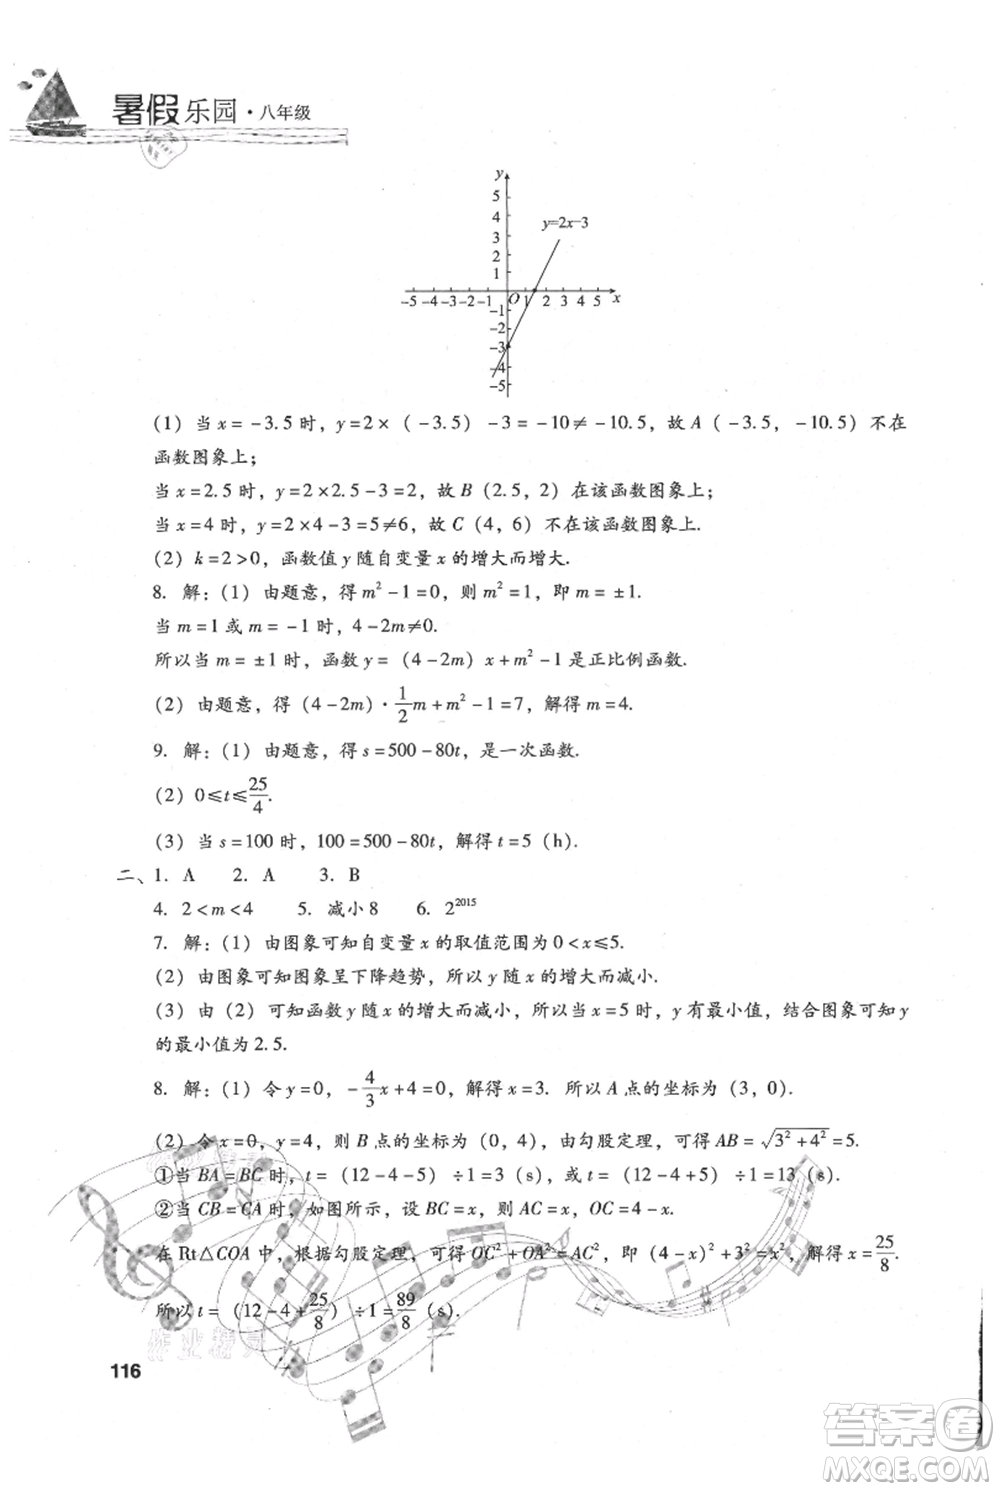 暑假乐园·八年级
y
5
4
3
2
1
y=2x-3
-5 -4 -3 -2 -1 O 1 2 3 4 5 x
-1
-2
-3
-4
-5
(1) 当 x = -3.5 时, y=2× (-3.5) -3=-10≠-10.5, 故 A (-3.5, -10.5) 不在
函数图象上;
当 x=2.5 时, y=2×2.5-3=2, 故 B (2.5, 2) 在该函数图象上;
当 x=4 时, y=2×4-3=5≠6, 故 C (4, 6) 不在该函数图象上.
(2) k=2>0, 函数值 y 随自变量 x 的增大而增大.
8. 解: (1) 由题意, 得 m²-1=0, 则 m²=1, 即 m=±1.
当 m=1 或 m=-1 时, 4-2m≠0.
所以当 m=±1 时, 函数 y=(4-2m) x+m²-1 是正比例函数.
(2) 由题意, 得 (4-2m)·1/2 m+m²-1=7, 解得 m=4.
9. 解: (1) 由题意, 得 s=500-80t, 是一次函数.
(2) 0≤t≤25/4.
(3) 当 s=100 时, 100=500-80t, 解得 t=5 (h).
二、1. A 2. A 3. B
4. 2<m<4 5. 减小 8 6. 2²⁰¹⁵
7. 解: (1) 由图象可知自变量 x 的取值范围为 0<x≤5.
(2) 由图象可知图象呈下降趋势, 所以 y 随 x 的增大而减小.
(3) 由 (2) 可知函数 y 随 x 的增大而减小, 所以当 x=5 时, y 有最小值, 结合图象可知 y
的最小值为 2.5.
8. 解: (1) 令 y=0, -4/3 x+4=0, 解得 x=3. 所以 A 点的坐标为 (3, 0).
(2) 令 x=0, y=4, 则 B 点的坐标为 (0, 4), 由勾股定理, 可得 AB=√(3²+4²)=5.
①当 BA=BC 时, t=(12-4-5)÷1=3 (s), 或 t=(12-4+5)÷1=13 (s).
②当 CB=CA 时, 如图所示, 设 BC=x, 则 AC=x, OC=4-x.
在 Rt△COA 中, 根据勾股定理, 可得 OC²+OA²=AC², 即 (4-x)²+3²=x², 解得 x=25/8.
所以 t=(12-4+25/8)÷1=89/8 (s).
作业精灵
116
答案圈
MXQE.COM